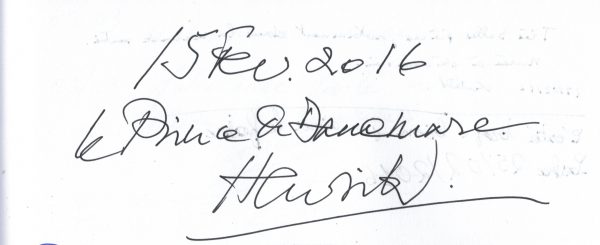 15 Fev. 2016
le Prince de Danemark
Henrik.